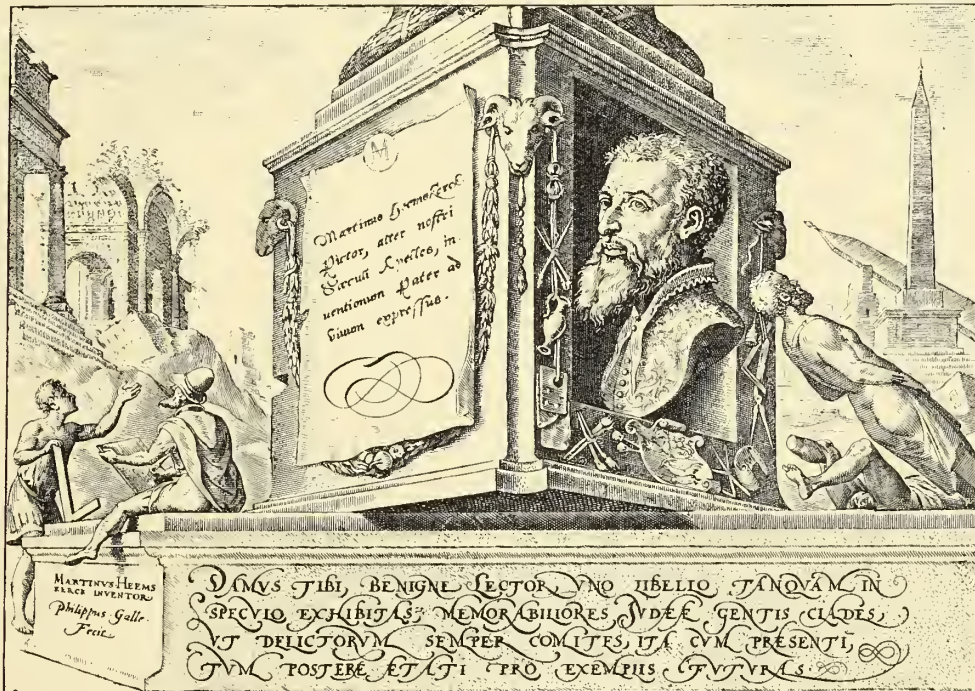 Martinus Hemskerck
Pictor, alter nostri
Sæculi Apelles, in
uentionum Pater ad
viuum expressus.
MARTINVS HEEMS
KERCK INVENTOR
Philippus Galle
Fecit
DAMVS TIBI, BENIGNE LECTOR, VNO LIBELLO TANQVAM IN
SPECVLO EXHIBITAS MEMORABILIORES IVDEÆ GENTIS CLADES,
VT DELICTORVM SEMPER COMITES, ITA CVM PRESENTI,
TVM POSTERÆ ÆTATI PRO EXEMPLIS FVTVRAS